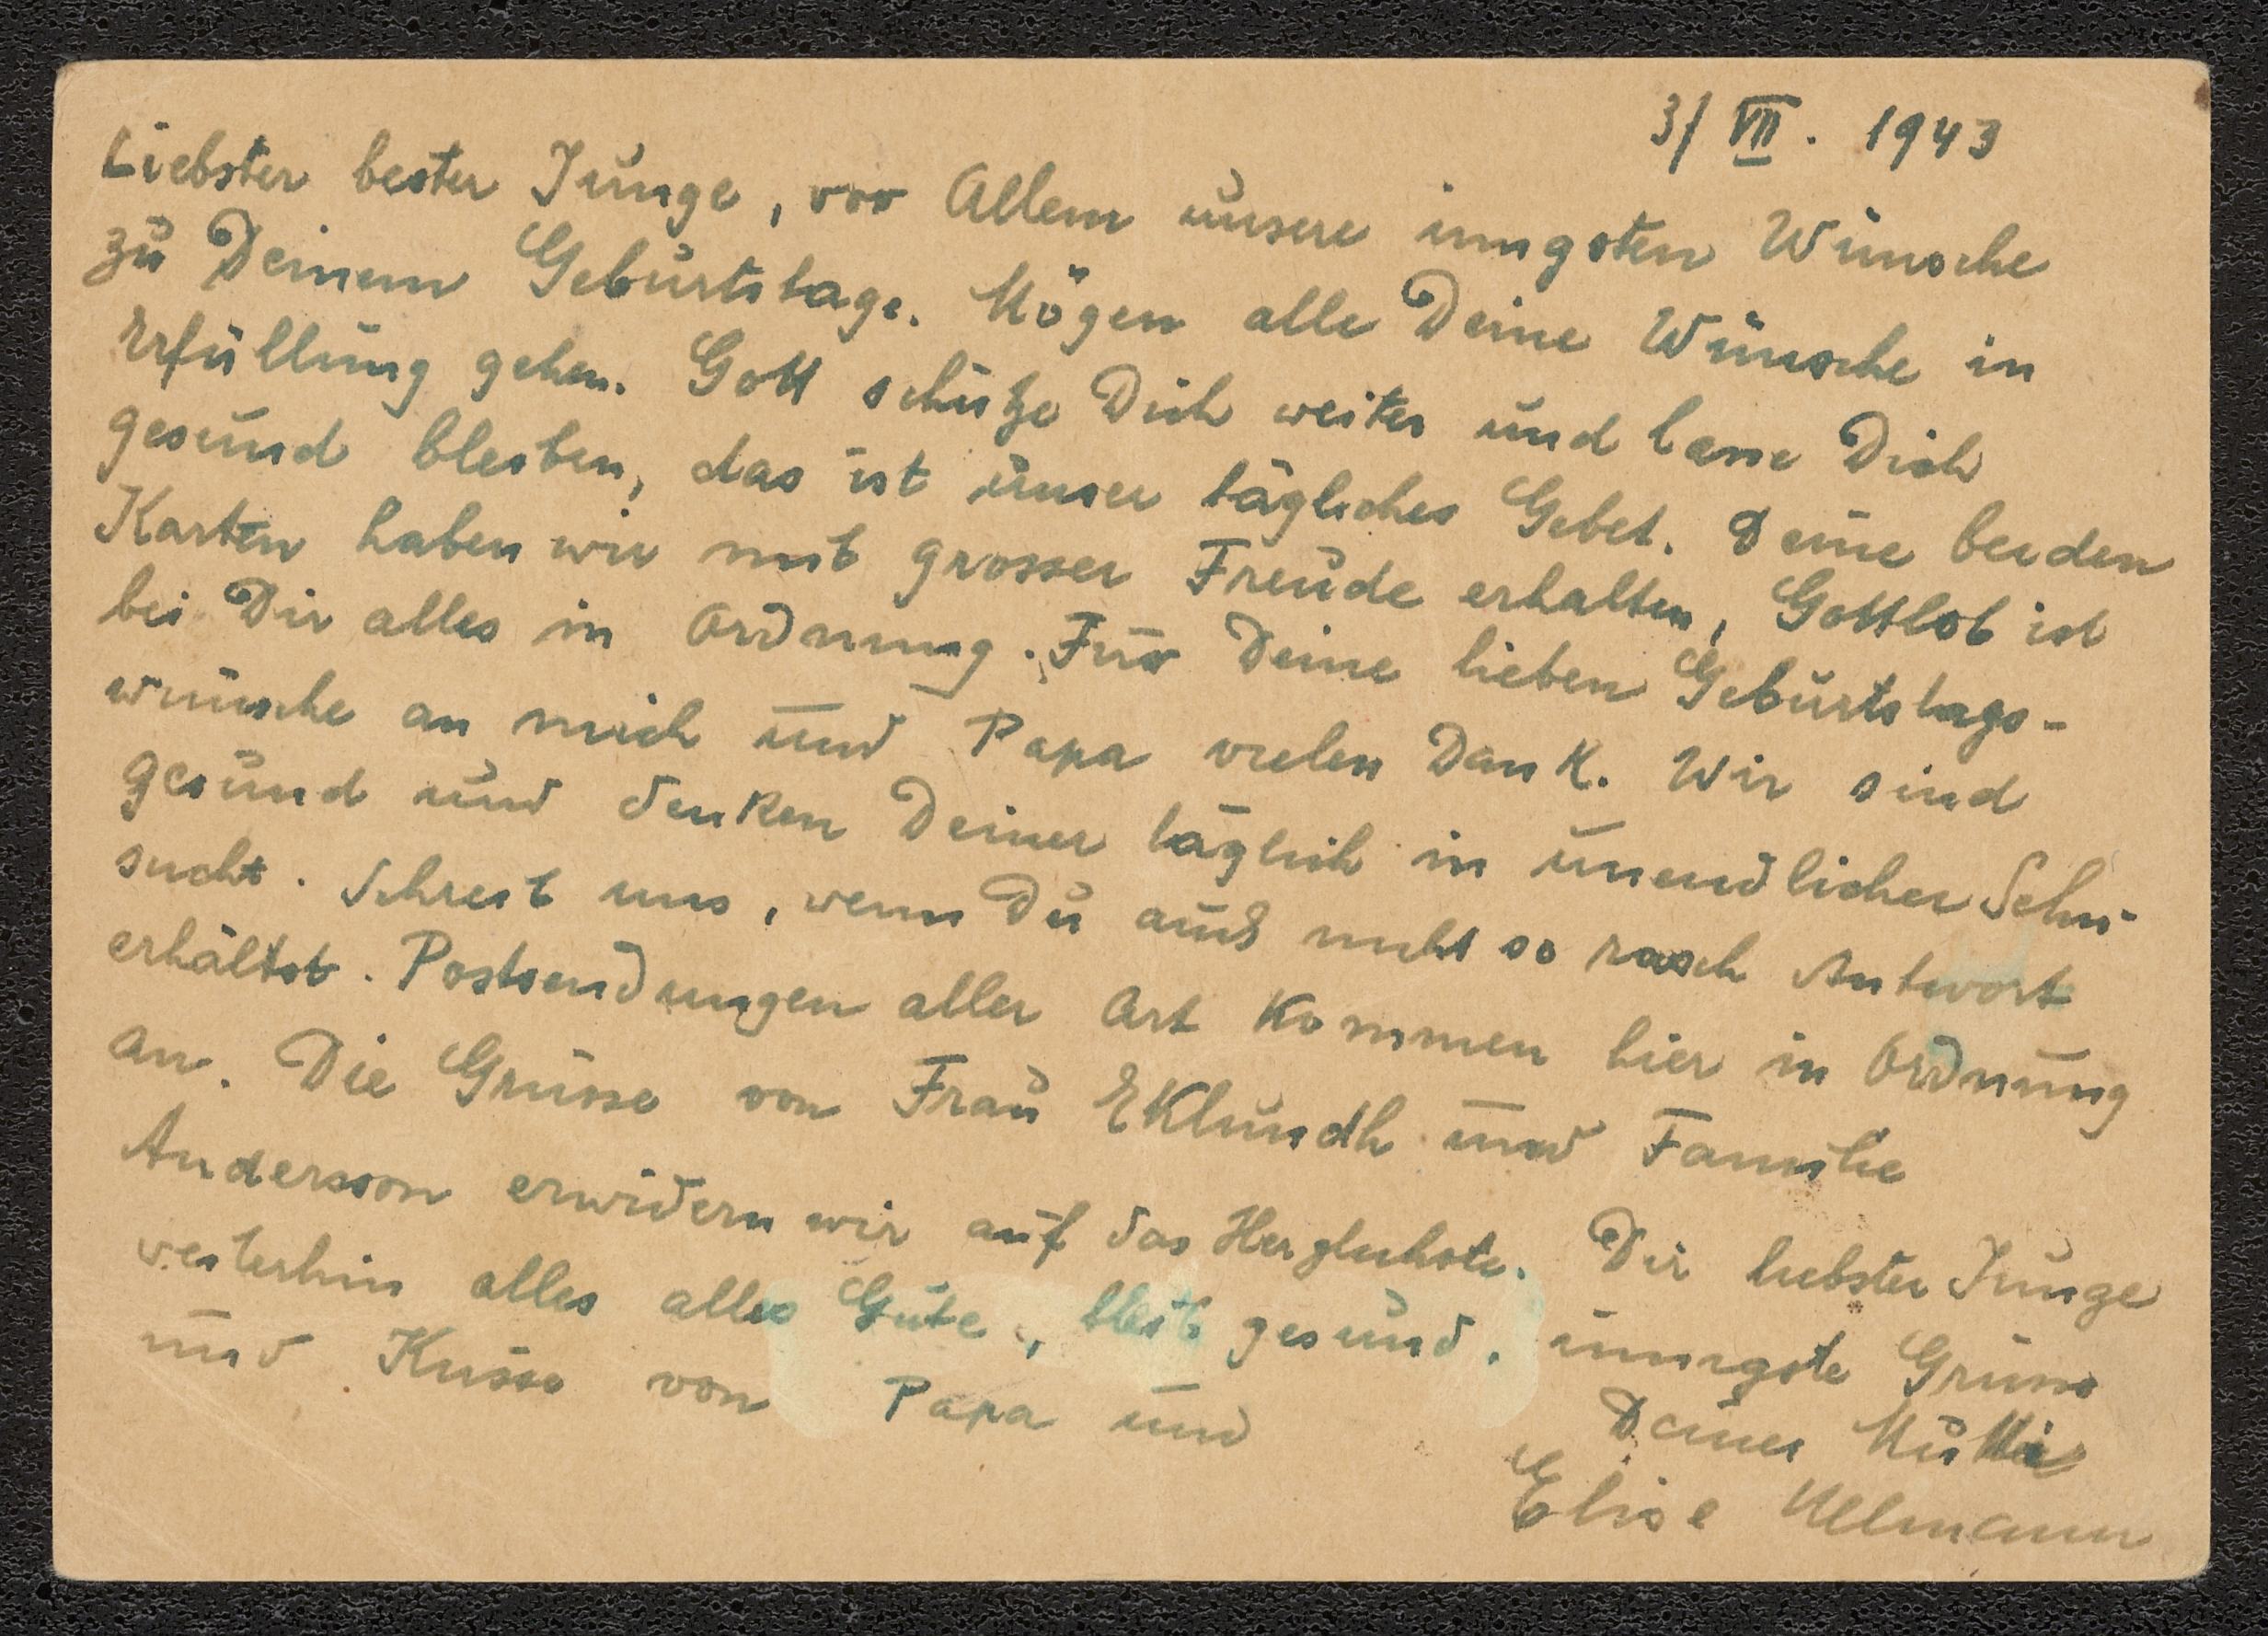 3/VII. 1943
Liebster bester Junge, vor Allem unsere inngsten Wünsche
zu Deinem Geburtstage. Mögen alle Deine Wünsche in
Erfüllung gehen. Gott schütze Dich weiter und lasse Dich
gesund bleiben, das ist unser tägliches Gebet. Deine beiden
Karten haben wir mit grosser Freude erhalten, Gottlob ist
bei Dir alles in Ordnung. Für Deine lieben Geburtstags-
wünsche an mich und Papa vielen Dank. Wir sind
gesund und denken Deiner täglich in unendlicher Sehn-
sucht. Schreib uns, wenn Du auch nicht so rasch Antwort
erhältst. Postsendungen aller Art kommen hier in Ordnung
an. Die Grüsse von Frau Eklundh und Familie
Andersson erwidern wir auf das Herzlichste. Dir liebster Junge
weiterhin alles alles Gute, bleib gesund, innigste Grüsse
und Küsse von Papa und
Deiner Mutti
Elise Ullmann